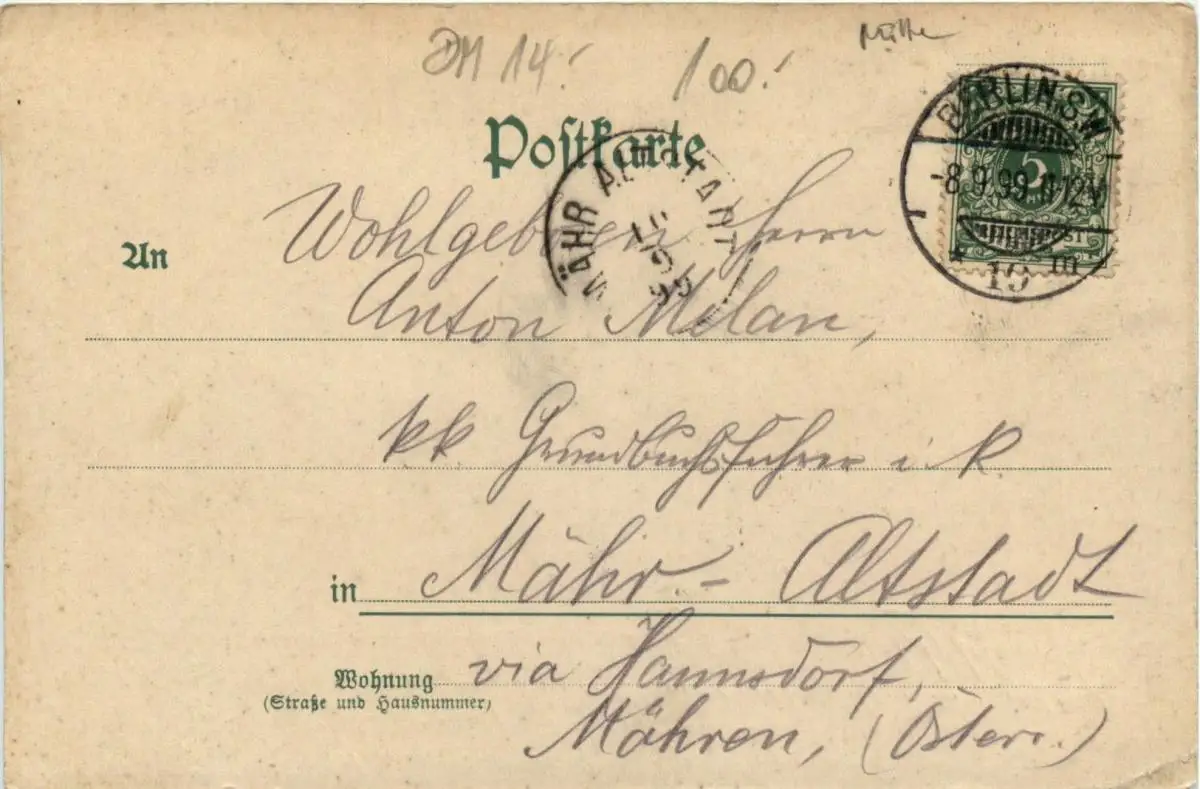 DM 14.-
100.-
Postkarte
BERLIN, S.W.
-8.9.99.
5
19
MÄHR ALTSTADT
99
An Wohlgeboren Herrn
Anton Milan,
kk Grundbuchsführer i. R.
in Mähr-Altstadt
Wohnung via Hannsdorf,
(Straße und Hausnummer)
Mähren, (Österr.)